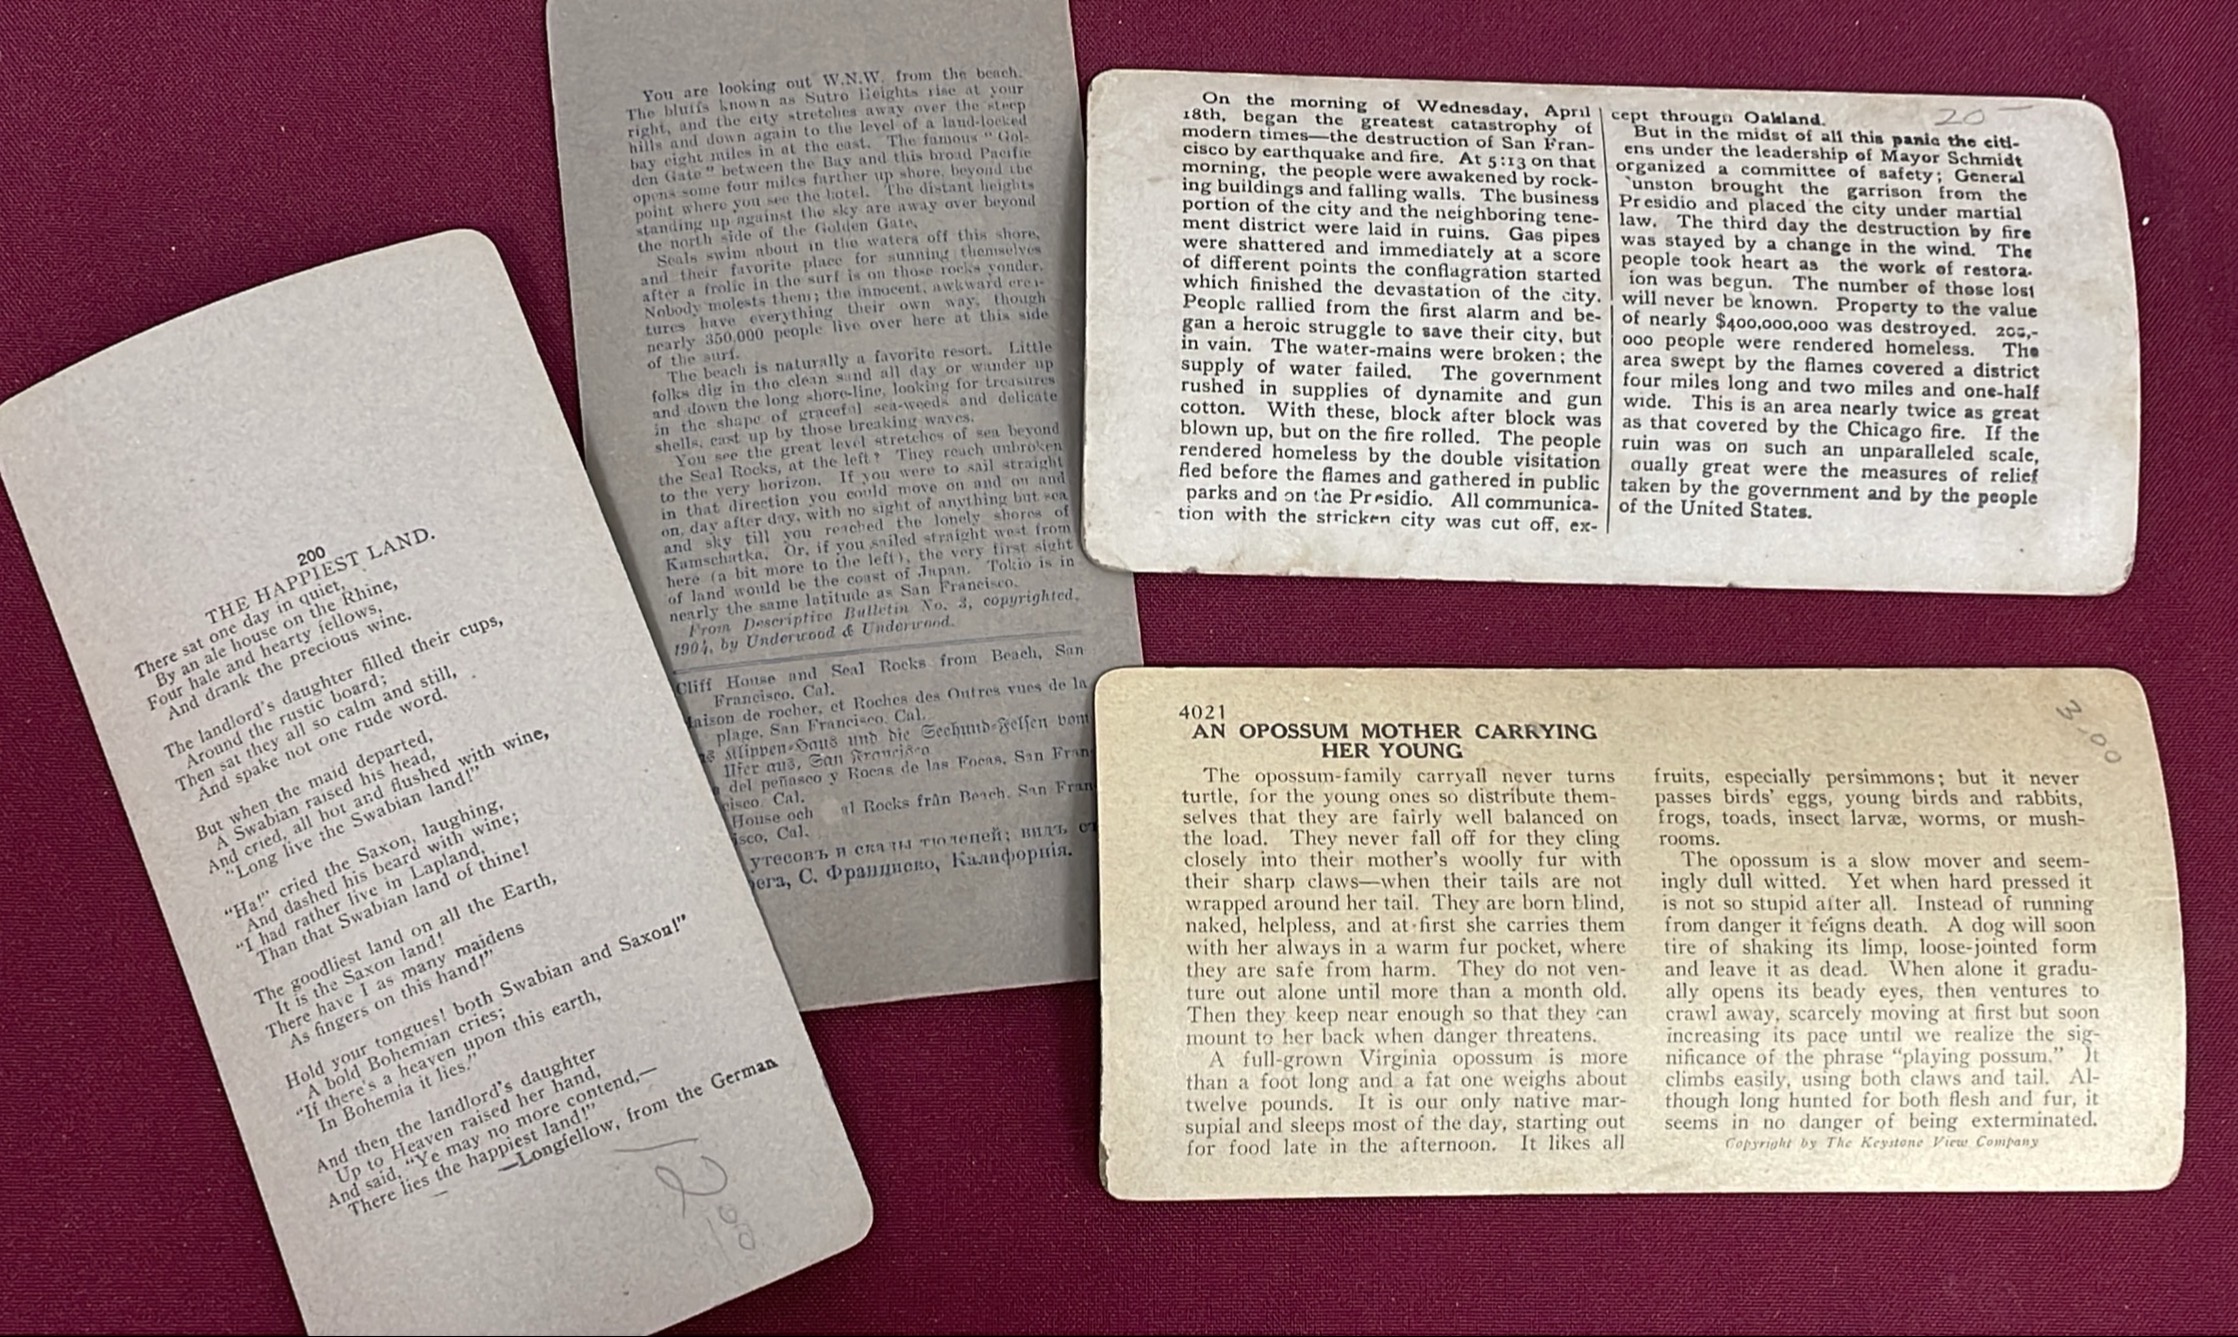 200
THE HAPPIEST LAND.
There sat one day in quiet,
By an ale house on the Rhine,
Four hale and hearty fellows,
And drank the precious wine.
The landlord's daughter filled their cups,
Around the rustic board;
Then sat they all so calm and still,
And spake not one rude word.
But when the maid departed,
A Swabian raised his head,
And cried, all hot and flushed with wine,
“Long live the Swabian land!”
“Ha!” cried the Saxon, laughing,
And dashed his beard with wine;
“I had rather live in Lapland,
Than that Swabian land of thine!
The goodliest land on all the Earth,
It is the Saxon land!
There have I as many maidens
As fingers on this hand!”
Hold your tongues! both Swabian and Saxon!”
A bold Bohemian cries;
“If there's a heaven upon this earth,
In Bohemia it lies.”
And then the landlord's daughter
Up to Heaven raised her hand,
And said, “Ye may no more contend,—
There lies the happiest land!”
—Longfellow, from the German
2.00
You are looking out W.N.W. from the beach.
The bluffs known as Sutro Heights rise at your
right, and the city stretches away over the steep
hills and down again to the level of a land-locked
bay eight miles in at the east. The famous “Gol-
den Gate” between the Bay and this broad Pacific
opens some four miles farther up shore, beyond the
point where you see the hotel. The distant heights
standing up against the sky are away over beyond
the north side of the Golden Gate.
Seals swim about in the waters off this shore,
and their favorite place for sunning themselves
after a frolic in the surf is on those rocks yonder.
Nobody molests them; the innocent, awkward crea-
tures have everything their own way, though
nearly 350,000 people live over here at this side
of the surf.
The beach is naturally a favorite resort. Little
folks dig in the clean sand all day or wander up
and down the long shore-line, looking for treasures
in the shape of graceful sea-weeds and delicate
shells, cast up by those breaking waves.
You see the great level stretches of sea beyond
the Seal Rocks, at the left? They reach unbroken
to the very horizon. If you were to sail straight
in that direction you could move on and on and
on, day after day, with no sight of anything but sea
and sky till you reached the lonely shores of
Kamschatka. Or, if you sailed straight west from
here (a bit more to the left), the very first sight
of land would be the coast of Japan. Tokio is in
nearly the same latitude as San Francisco.
From Descriptive Bulletin No. 3, copyrighted,
1904, by Underwood & Underwood.
Cliff House and Seal Rocks from Beach, San
Francisco, Cal.
Maison de rocher, et Roches des Outres vues de la
plage, San Francisco, Cal.
Klippen-Haus und die Seehund-Felsen vom
Ufer aus, San Francisco
del peñasco y Rocas de las Focas, San Fran
cisco, Cal.
House och al Rocks från Beach, San Fran
isco, Cal.
утесовъ и скалы тюленей; видъ с
ега, С. Франциско, Калифорнія.
On the morning of Wednesday, April
18th, began the greatest catastrophy of
modern times—the destruction of San Fran-
cisco by earthquake and fire. At 5:13 on that
morning, the people were awakened by rock-
ing buildings and falling walls. The business
portion of the city and the neighboring tene-
ment district were laid in ruins. Gas pipes
were shattered and immediately at a score
of different points the conflagration started
which finished the devastation of the city.
People rallied from the first alarm and be-
gan a heroic struggle to save their city, but
in vain. The water-mains were broken; the
supply of water failed. The government
rushed in supplies of dynamite and gun
cotton. With these, block after block was
blown up, but on the fire rolled. The people
rendered homeless by the double visitation
fled before the flames and gathered in public
parks and on the Presidio. All communica-
tion with the stricken city was cut off, ex-
cept through Oakland.
20
But in the midst of all this panic the citi-
ens under the leadership of Mayor Schmidt
organized a committee of safety; General
unston brought the garrison from the
Presidio and placed the city under martial
law. The third day the destruction by fire
was stayed by a change in the wind. The
people took heart as the work of restora-
ion was begun. The number of those lost
will never be known. Property to the value
of nearly $400,000,000 was destroyed. 205,-
000 people were rendered homeless. The
area swept by the flames covered a district
four miles long and two miles and one-half
wide. This is an area nearly twice as great
as that covered by the Chicago fire. If the
ruin was on such an unparalleled scale,
qually great were the measures of relief
taken by the government and by the people
of the United States.
4021
AN OPOSSUM MOTHER CARRYING
HER YOUNG
3.00
The opossum-family carryall never turns
turtle, for the young ones so distribute them-
selves that they are fairly well balanced on
the load. They never fall off for they cling
closely into their mother's woolly fur with
their sharp claws—when their tails are not
wrapped around her tail. They are born blind,
naked, helpless, and at first she carries them
with her always in a warm fur pocket, where
they are safe from harm. They do not ven-
ture out alone until more than a month old.
Then they keep near enough so that they can
mount to her back when danger threatens.
A full-grown Virginia opossum is more
than a foot long and a fat one weighs about
twelve pounds. It is our only native mar-
supial and sleeps most of the day, starting out
for food late in the afternoon. It likes all
fruits, especially persimmons; but it never
passes birds' eggs, young birds and rabbits,
frogs, toads, insect larvæ, worms, or mush-
rooms.
The opossum is a slow mover and seem-
ingly dull witted. Yet when hard pressed it
is not so stupid after all. Instead of running
from danger it feigns death. A dog will soon
tire of shaking its limp, loose-jointed form
and leave it as dead. When alone it gradu-
ally opens its beady eyes, then ventures to
crawl away, scarcely moving at first but soon
increasing its pace until we realize the sig-
nificance of the phrase “playing possum.” It
climbs easily, using both claws and tail. Al-
though long hunted for both flesh and fur, it
seems in no danger of being exterminated.
Copyright by The Keystone View Company